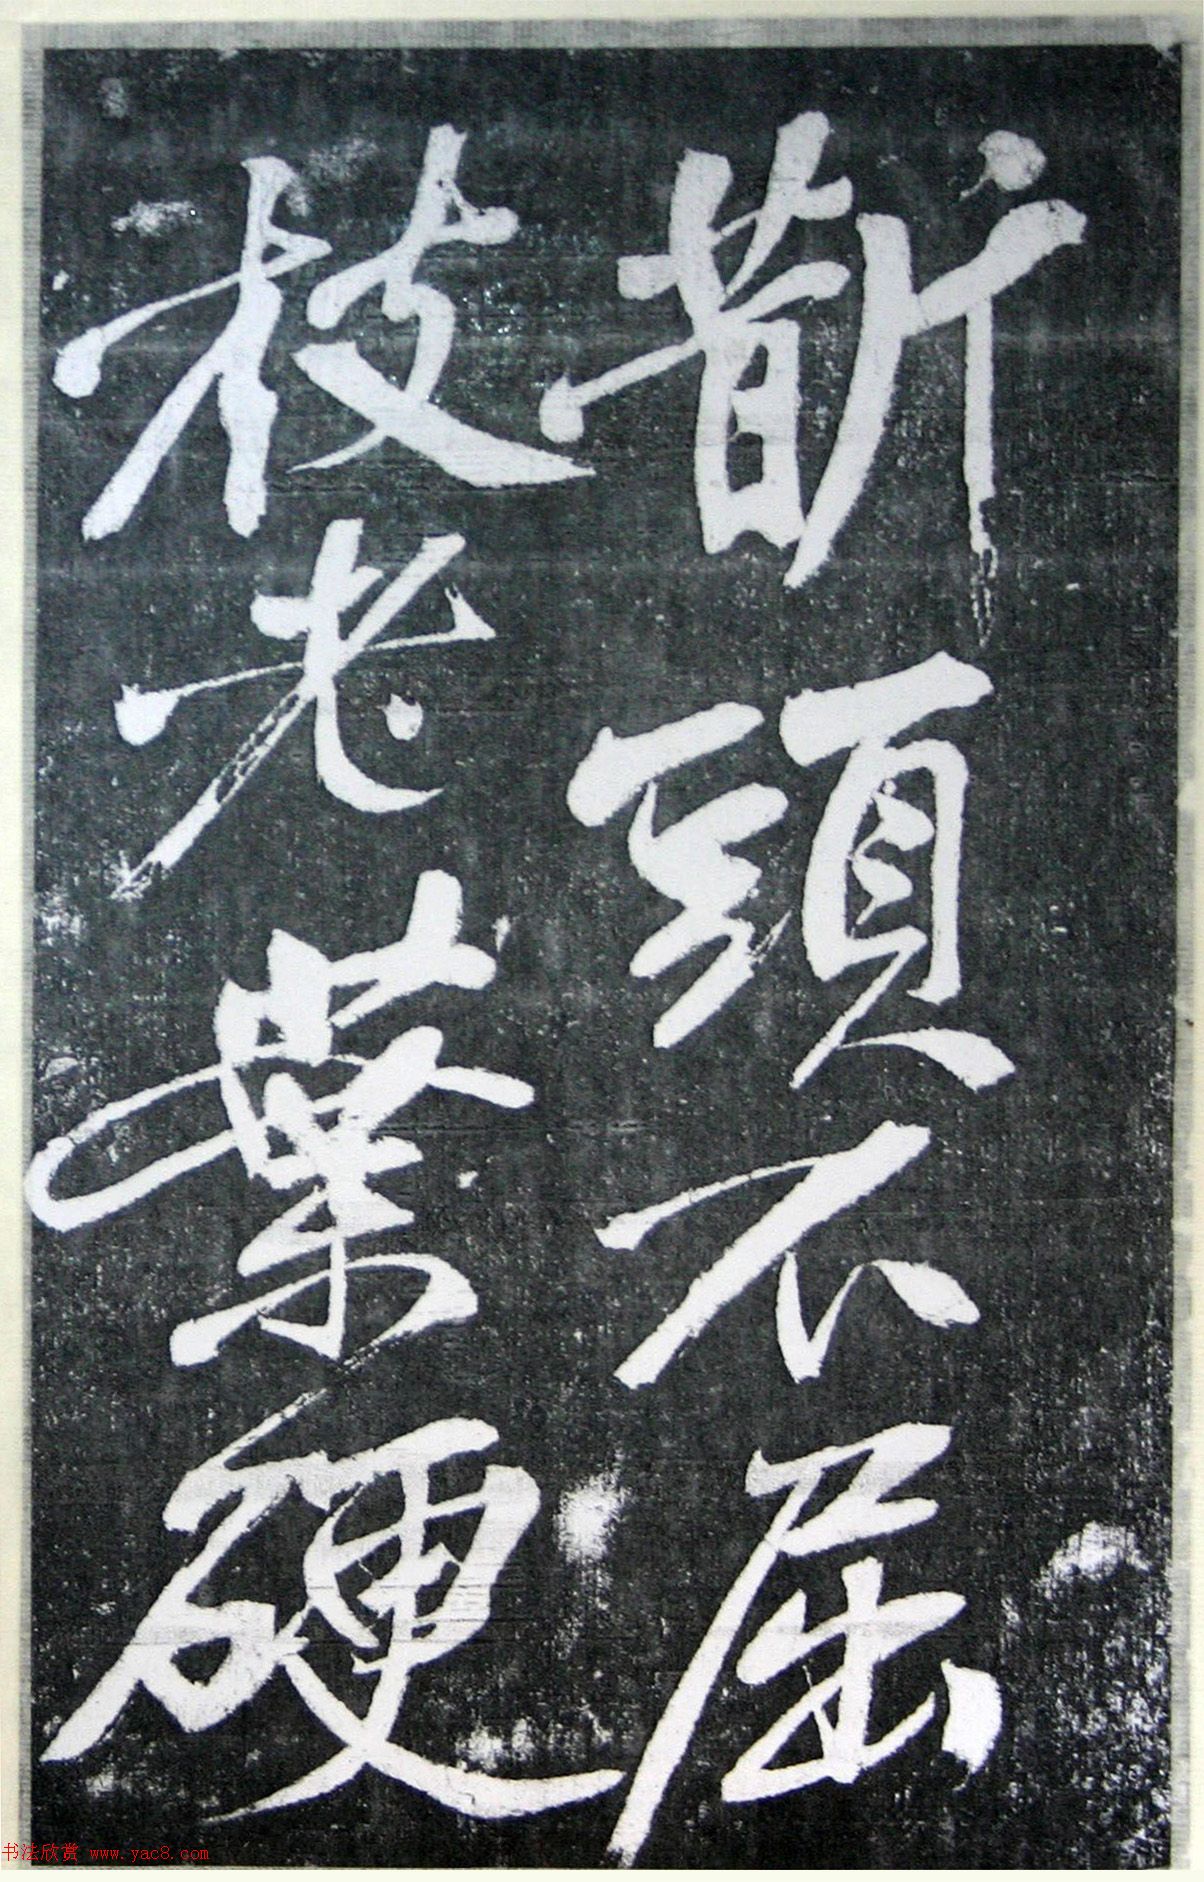 斬頭不屈
枝老葉硬
书法欣赏 www.yac8.com